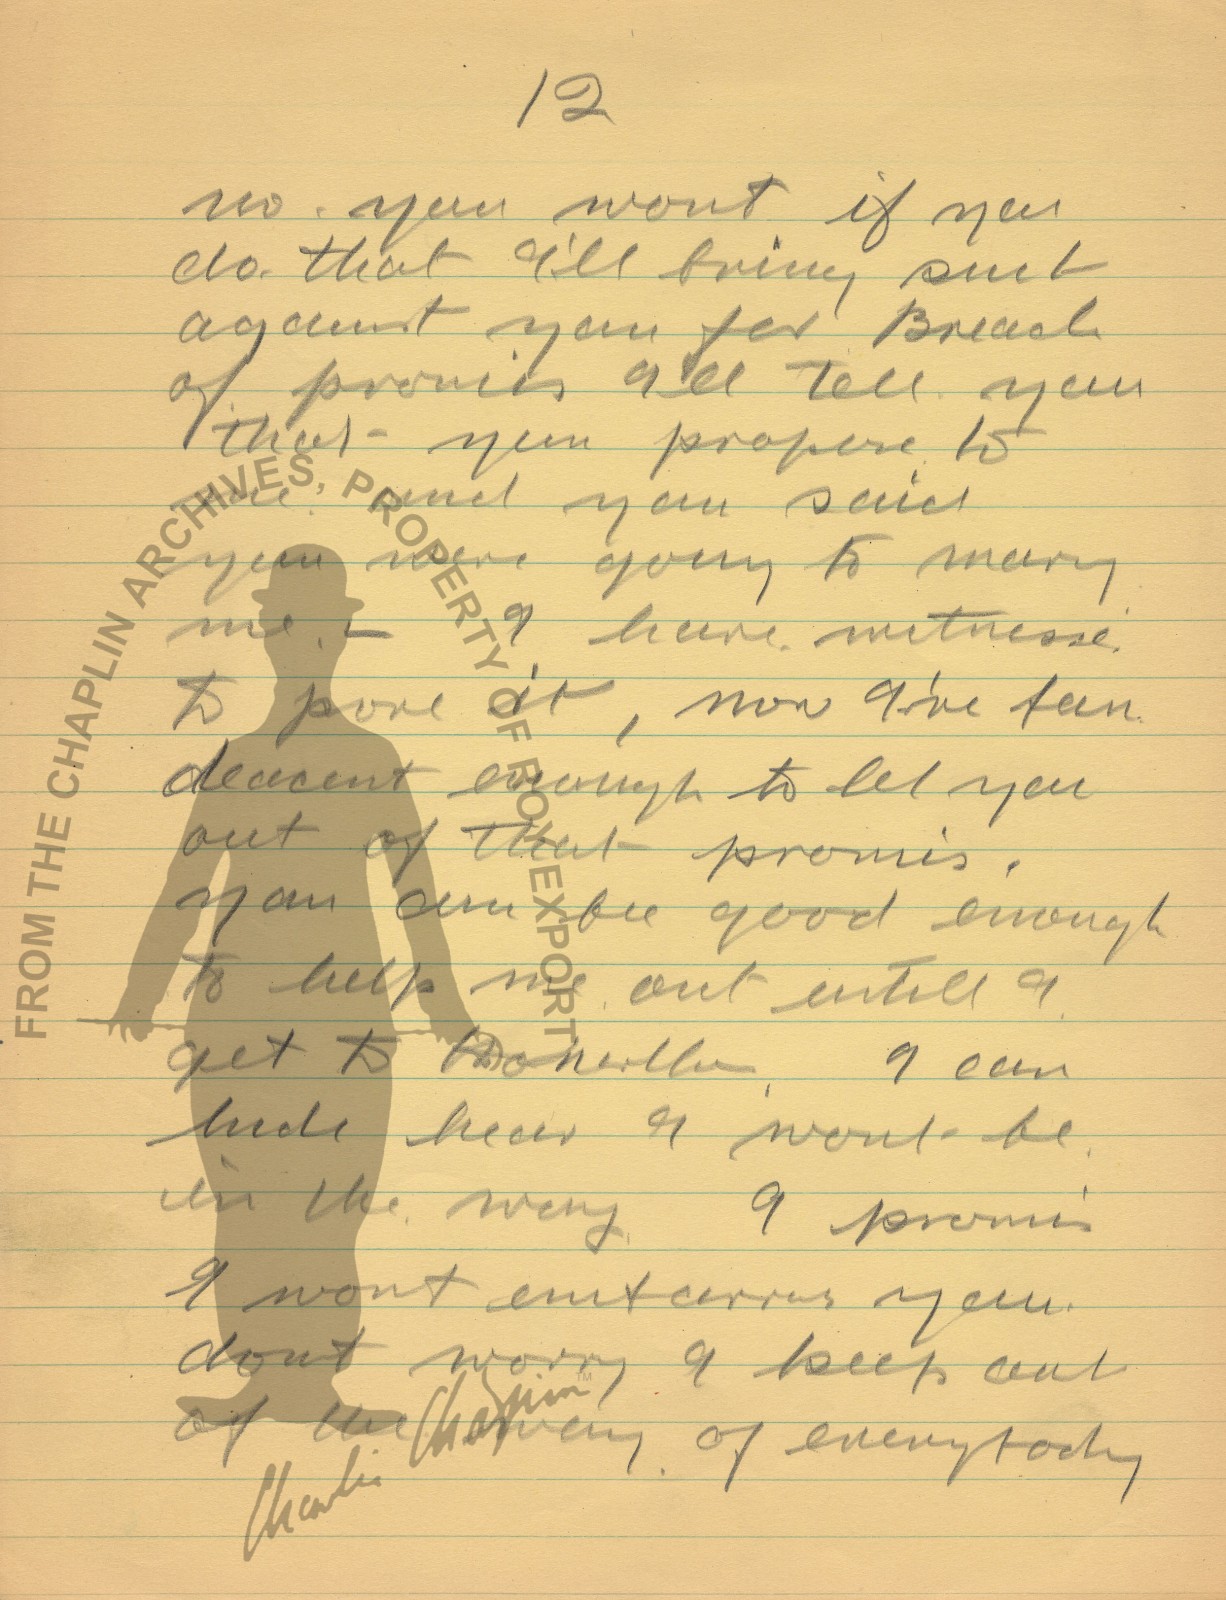 12
no. you wont if you
do. that I'll bring suit
against you for Breach
of promis I'll tell you
that you propose to
me. and you said
you were going to marry
me. – I have witnesse
to prove it, now I've
deacent enough to let you
out of that promis.
you can be good enough
to help me out untill I
get to I can
hide hear I wont be
in the way I promis
I wont embarras you.
dont worry I keep out
of the way of everybody
FROM THE CHAPLIN ARCHIVES, PROPERTY OF ROY EXPORT
Charlie Chaplin ™